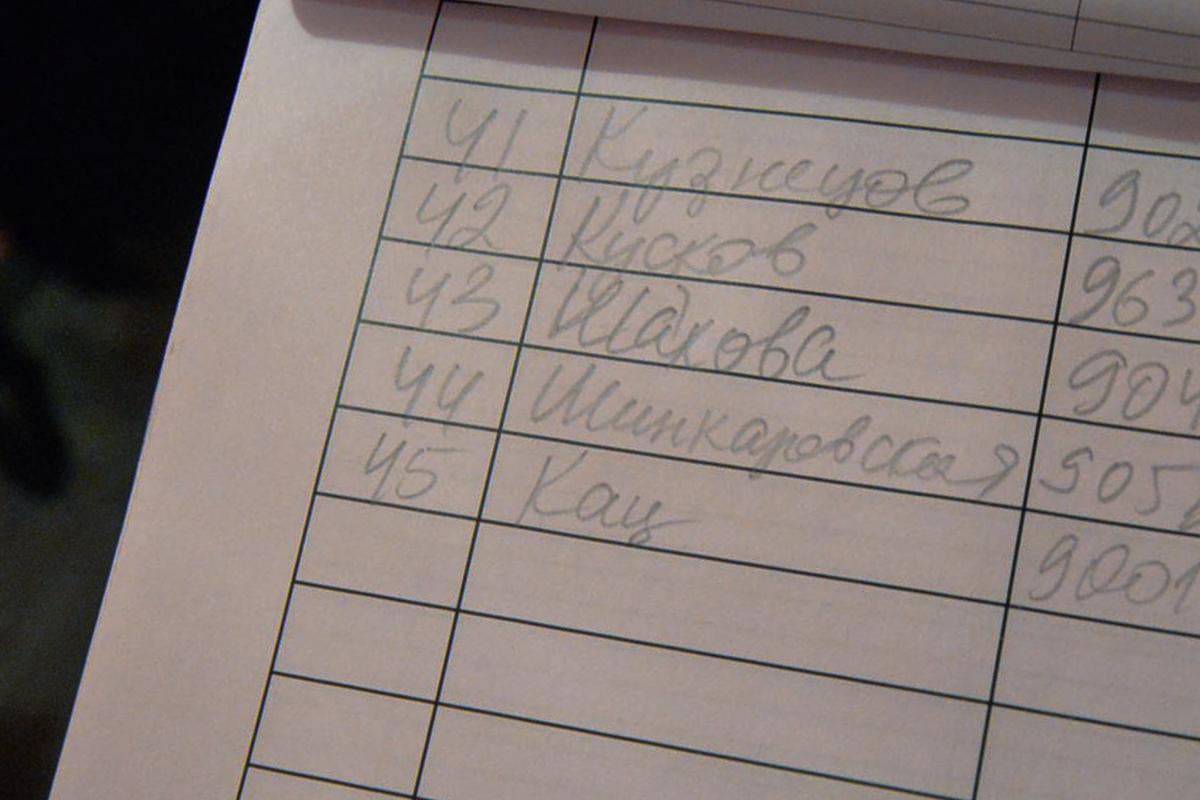 41 Кузнецов 902
42 Кусков 963
43 Шахова 904
44 Шинкаровская 905
45 Кац 9001